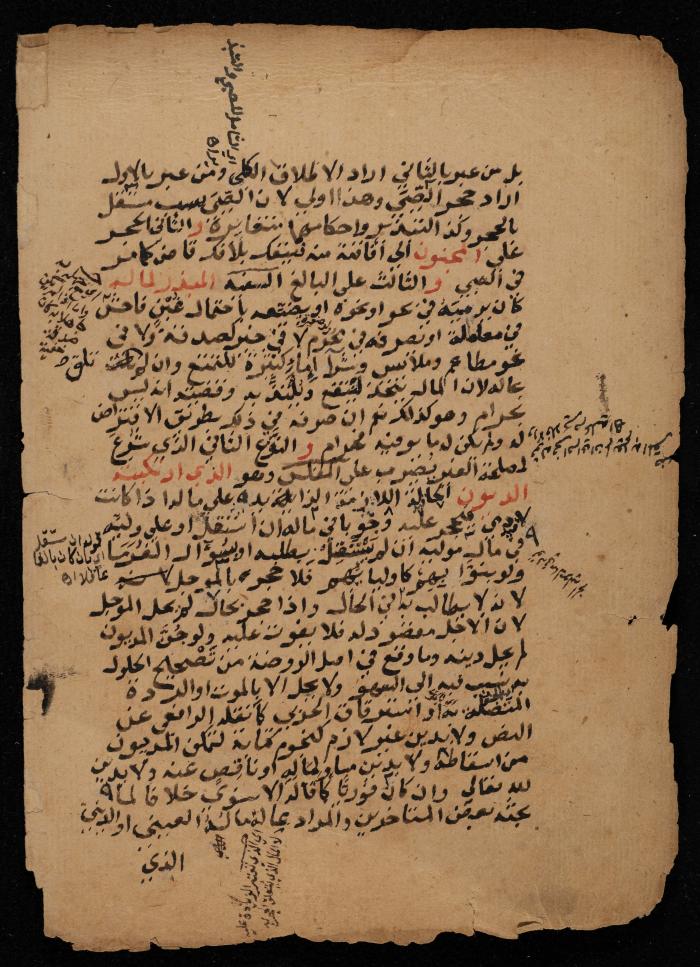 بل من عبر بالثاني اراد الاطلاق الكلي ومن عبر بالاول
اراد حجر الصبي وهذا اولي لان الصبي سبب مستقل
بالحجر وكذا التبذير واحكامهما متغايرة و الثاني الحجر
على المجنون الى افاقته منه فينفك بلا فك قاض كما مر
في الصبي و الثالث على البالغ السفيه المبذر لماله
كان يرميه في بحر او نحوه او يضيعه باحتمال غبن فاحش
في معاملة او يصرفه في محرم لا في خير كصدقة ولا في
نحو مطاعم وملابس وشرا اماء كثيرة للتمتع وان لم تلق
بحاله لان المال يتخذ لينتفع ويلتذ به وقضيته انه ليس
بحرام وهو كذلك نعم ان صرفه في ذلك بطريق الاقتراض
له ولم يكن له ما يوفيه فحرام و النوع الثاني الذي شرع
لمصلحة الغير يضرب على المفلس وهو الذي ارتكبته
الديون الحالة اللازمة الزائدة على ماله اذا كانت
لادمي فيحجر عليه وجوبا في ماله ان استقل او على وليه
في مال موليه ان لم يستقل بطلبه او بسؤال الغرما
ولو بنوابهم كاوليائهم فلا حجر بالمؤجل
لانه لا يطالب به في الحال واذا حجر بحال لم يحل المؤجل
لان الاجل مقصود له فلا يفوت عليه ولو جن المديون
لم يحل دينه وما وقع في اصل الروضة من تصحيح الحلول
به نسب فيه الى السهو ولا يحل الا بالموت او الردة
المتصلة به او استرقاق الحربي كما نقله الرافعي عن
النص ولا بدين غير لازم كنجوم كتابة لتمكن المديون
من اسقاطه ولا بدين مساو لماله او ناقص عنه ولا بدين
لله تعالى وان كان فوريا كما قاله الاسنوي خلافا لما
بحثه بعض المتاخرين والمراد بماله ماله العيني او الديني
الذي
قوله ان استقل
اي بان كان بالغا
عاقلا اه